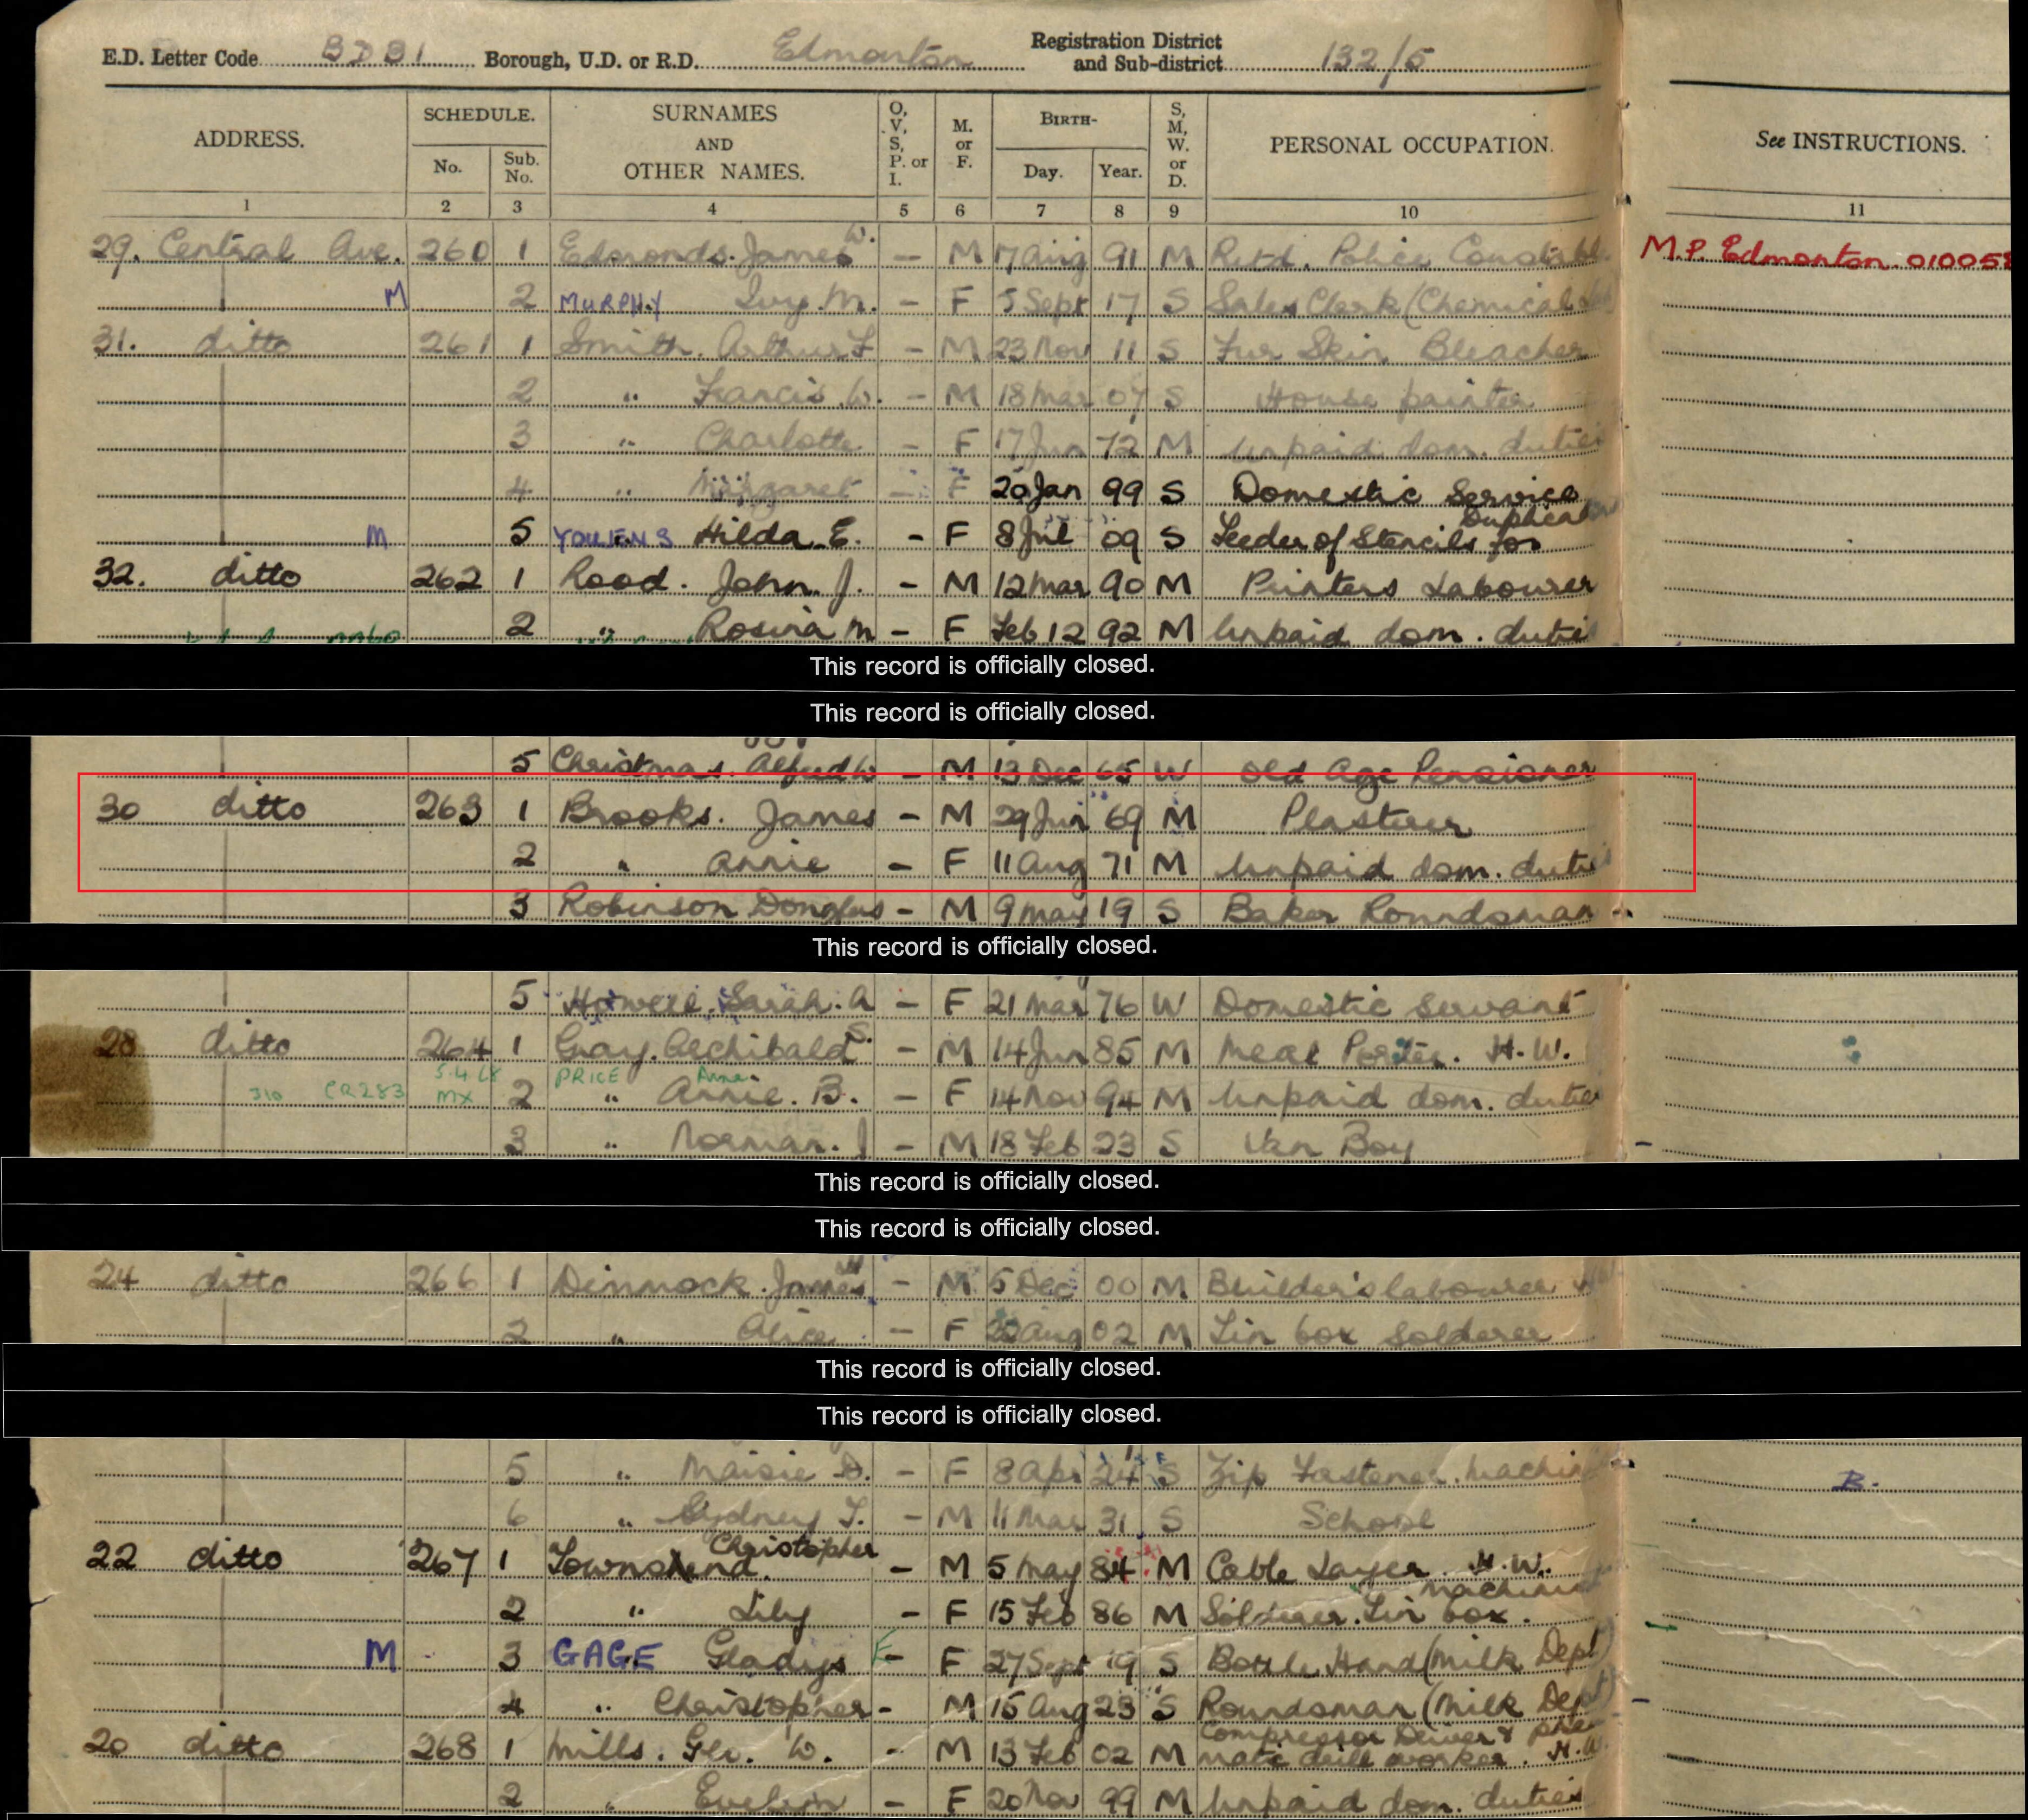 E.D. Letter Code BDBI Borough, U.D. or R.D. Edmonton Registration District and Sub-district 132/5
ADDRESS. SCHEDULE. No. Sub. No. SURNAMES AND OTHER NAMES. O, V, S, P. or I. M. or F. BIRTH- Day. Year. S, M, W. or D. PERSONAL OCCUPATION. See INSTRUCTIONS.
1 2 3 4 5 6 7 8 9 10 11
29. Central Ave. 260 1 Edmonds. James W. — M 17 Aug 91 M Retd. Police Constabl M.P. Edmonton. 010058
M 2 MURPHY Ivy. M. - F 5 Sept 17 S Sales Clerk (Chemical
31. ditto 261 1 Smith. Arthur F - M 23 Nov 11 S Fur Skin Bleacher
2 " Francis. W. - M 18 Mar 07 S House painter
3 " Charlotte - F 17 Jun 72 M Unpaid dom. duties
4 " Margaret - F 20 Jan 99 S Domestic Service
M 5 YOUENS Hilda. E. - F 8 Jul 09 S Feeder of Stencils for Duplicator
32. ditto 262 1 Rood. John. J. - M 12 Mar 90 M Printers Labourer
2 " Rosina M - F Feb 12 92 M Unpaid dom. dutie
This record is officially closed.
This record is officially closed.
5 Christmas. Alfred W - M 13 Dec 65 W Old Age Pensioner
30 ditto 263 1 Brooks. James - M 29 Jun 69 M Plasterer
2 " Annie - F 11 Aug 71 M Unpaid dom. duties
3 Robinson Douglas - M 9 May 19 S Baker Roundsman -
This record is officially closed.
5 Howell. Sarah. A - F 21 Mar 76 W Domestic Servant
28 ditto 264 1 Gray. Archibald S. - M 14 Jun 85 M Meat Porter. H.W.
310 CR283 5.4.68 MX PRICE Anne
2 " Annie. B. - F 14 Nov 94 M Unpaid dom. duties
3 " Norman. J - M 18 Feb 23 S Van Boy
This record is officially closed.
This record is officially closed.
24 ditto 266 1 Dinmock. James - M 5 Dec 00 M Builder's labourer
2 " Alice - F 22 Aug 02 M Tin box Solderer
This record is officially closed.
This record is officially closed.
5 " Maisie D. - F 8 Apr 24 S Zip Fastener. Machi B.
6 " Sydney T. - M 11 Mar 31 S School
22 ditto 267 1 Townsend. Christopher - M 5 May 84 M Cable Layer. H.W.
2 " Lily - F 15 Feb 86 M Solderer. Tin box. Machinist
M 3 GAGE Gladys - F 27 Sept 19 S Bottle Hand (Milk Dept)
4 " Christopher - M 15 Aug 23 S Roundsman (Milk Dept)
20 ditto 268 1 Mills. Geo. W. - M 13 Feb 02 M Compressor Driver & pneumatic drill worker. H.W.
2 " Evelyn - F 20 Nov 99 M Unpaid dom. duties